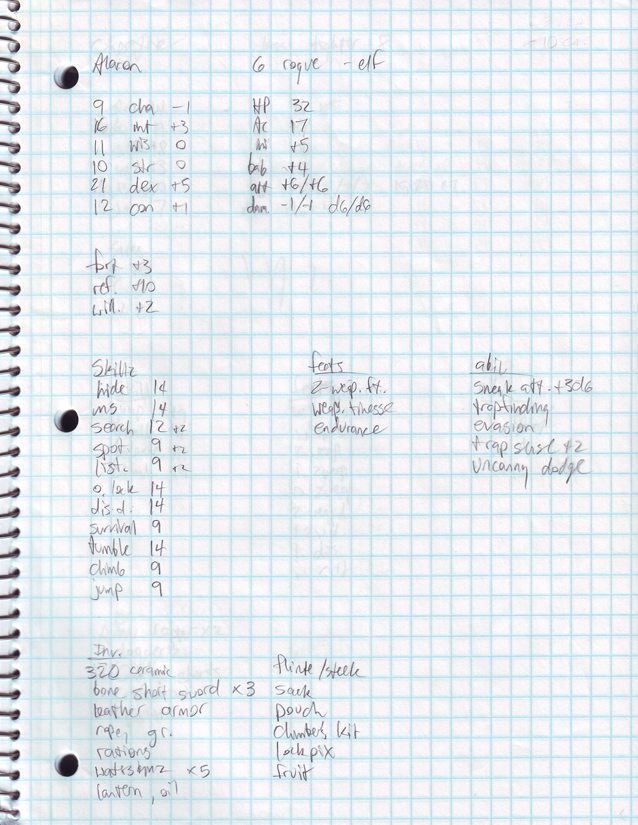 Alaron 6 rogue - elf
9 cha -1 HP 32
16 int +3 AC 17
11 wis 0 ini +5
10 str 0 bab +4
21 dex +5 att +6/+6
12 con +1 dam. -1/-1 d6/d6
fort +3
ref. +10
will. +2
Skillz feats abil.
hide 14 2-weap. ft. sneak att. +3d6
ms 14 weap. finesse trapfinding
search 12 +2 endurance evasion
spot 9 +2 trap sense +2
list. 9 +2 uncanny dodge
o. lock 14
dis.d. 14
survival 9
tumble 14
climb 9
jump 9
Inv.
320 ceramic flinte/steele
bone short sword x3 sack
leather armor pouch
rope, gr. climbers kit
rations lockpix
x5 fruit
lantern, oil